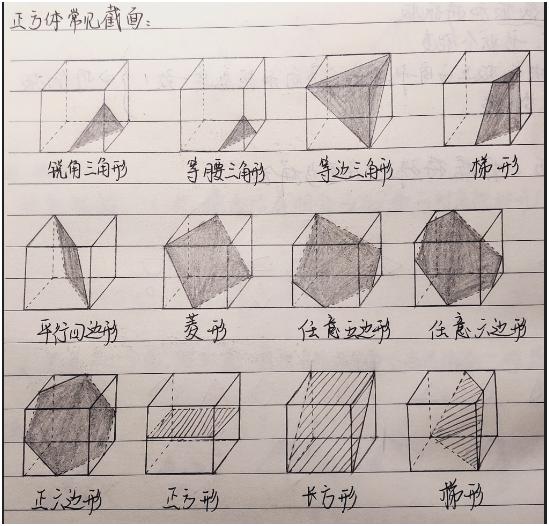 正方体常见截面:
锐角三角形 等腰三角形 等边三角形 梯形
平行四边形 菱形 任意五边形 任意六边形
正六边形 正方形 长方形 梯形